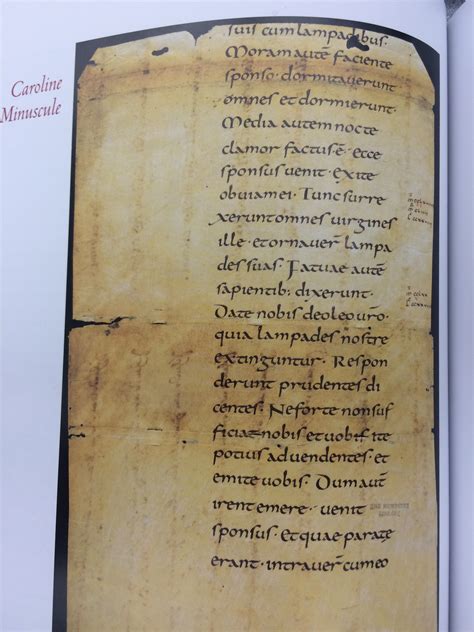 Caroline
Minuscule
suis cum lampadibus.
Moram autē faciente
sponso· dormitaverunt
omnes et dormierunt.
Media autem nocte
clamor factus·ē· etce
sponsus venit· exite
obviamei· Tunc surre
xerunt omnes virgines
ille· etornaver̄ lampa
des suas· Fatuae autē
sapientib; dixerunt·
Date nobis deoleo ūro·
quia lampades nostre
extinguntur· Respon
derunt prudentes di
centes· Neforte nonsuf
ficiat nobis et vobis ite
potius advendentes· et
emite vobis· Dum aut̄
irent emere· venit
sponsus· Et quae parate
erant· intraver̄ cum eo